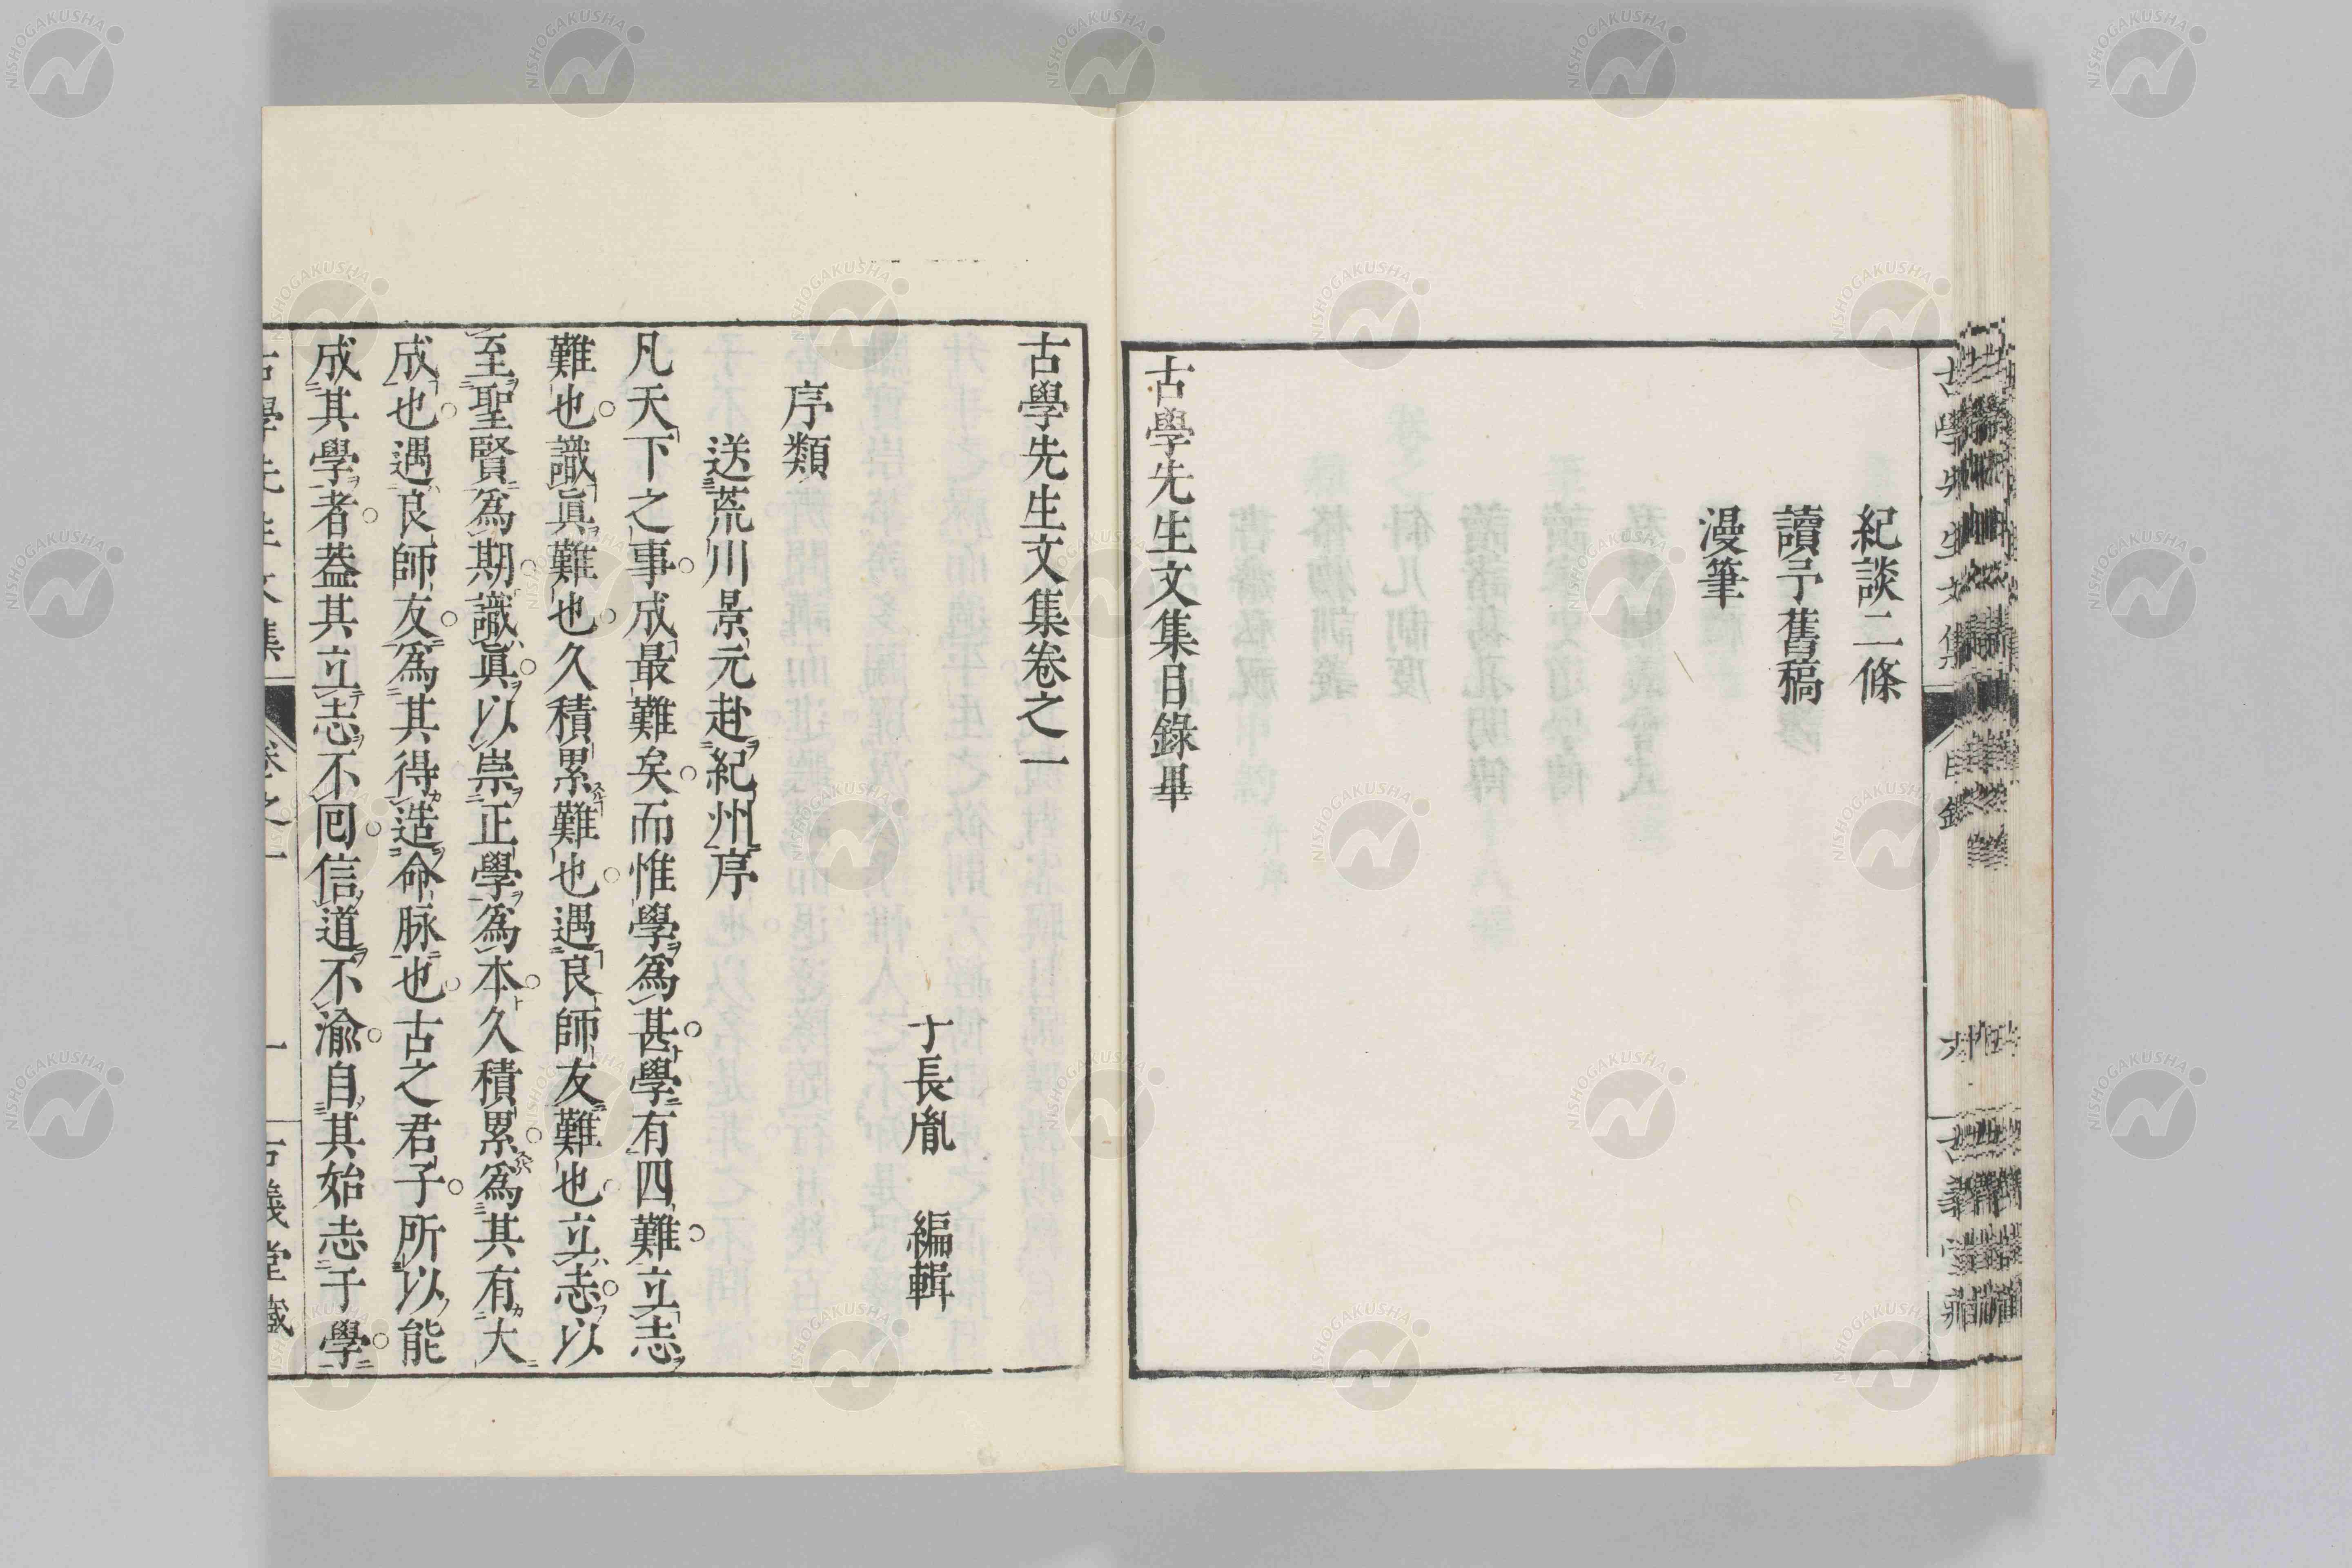 紀談二條
讀予舊稿
漫筆
古學先生文集目錄畢
古學先生文集卷之一
長胤　編輯
序類
送荒川景元赴紀州序
凡天下之事成最難矣而惟學爲甚學有四難立志
難也識眞難也久積累難也遇良師友難也立志以
至聖賢爲期識眞以崇正學爲本久積累爲其有大
成也遇良師友爲其得造命脉也古之君子所以能
成其學者葢其立志不回信道不渝自其始志于學
NISHOGAKUSHA